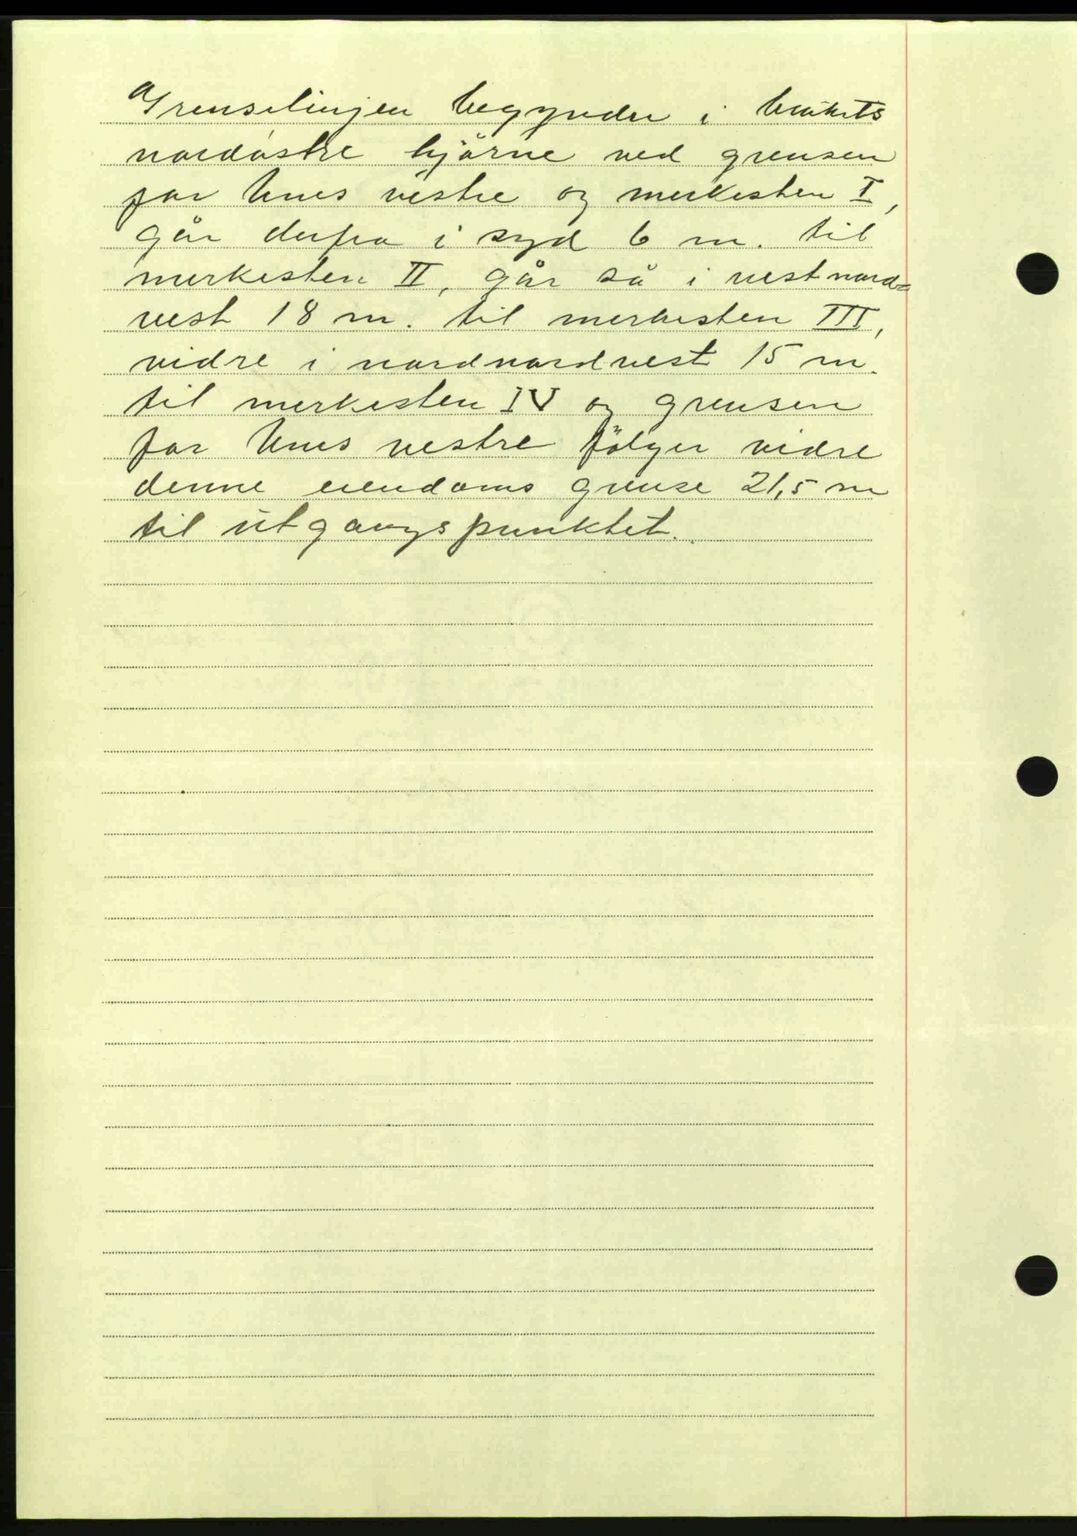 Grenselinjen begynder i brukets
nordöstre hjörne ved grensen
for Unes vestre og merkesten I,
går derfra i syd 6 m. til
merkesten II, går så i vestnord=
vest 18 m. til merkesten III,
vidre i nordnordvest 15 m.
til merkesten IV og grensen
for Unes vestre fölger vidre
denne eiendoms grense 21,5 m
til utgangspunktet.